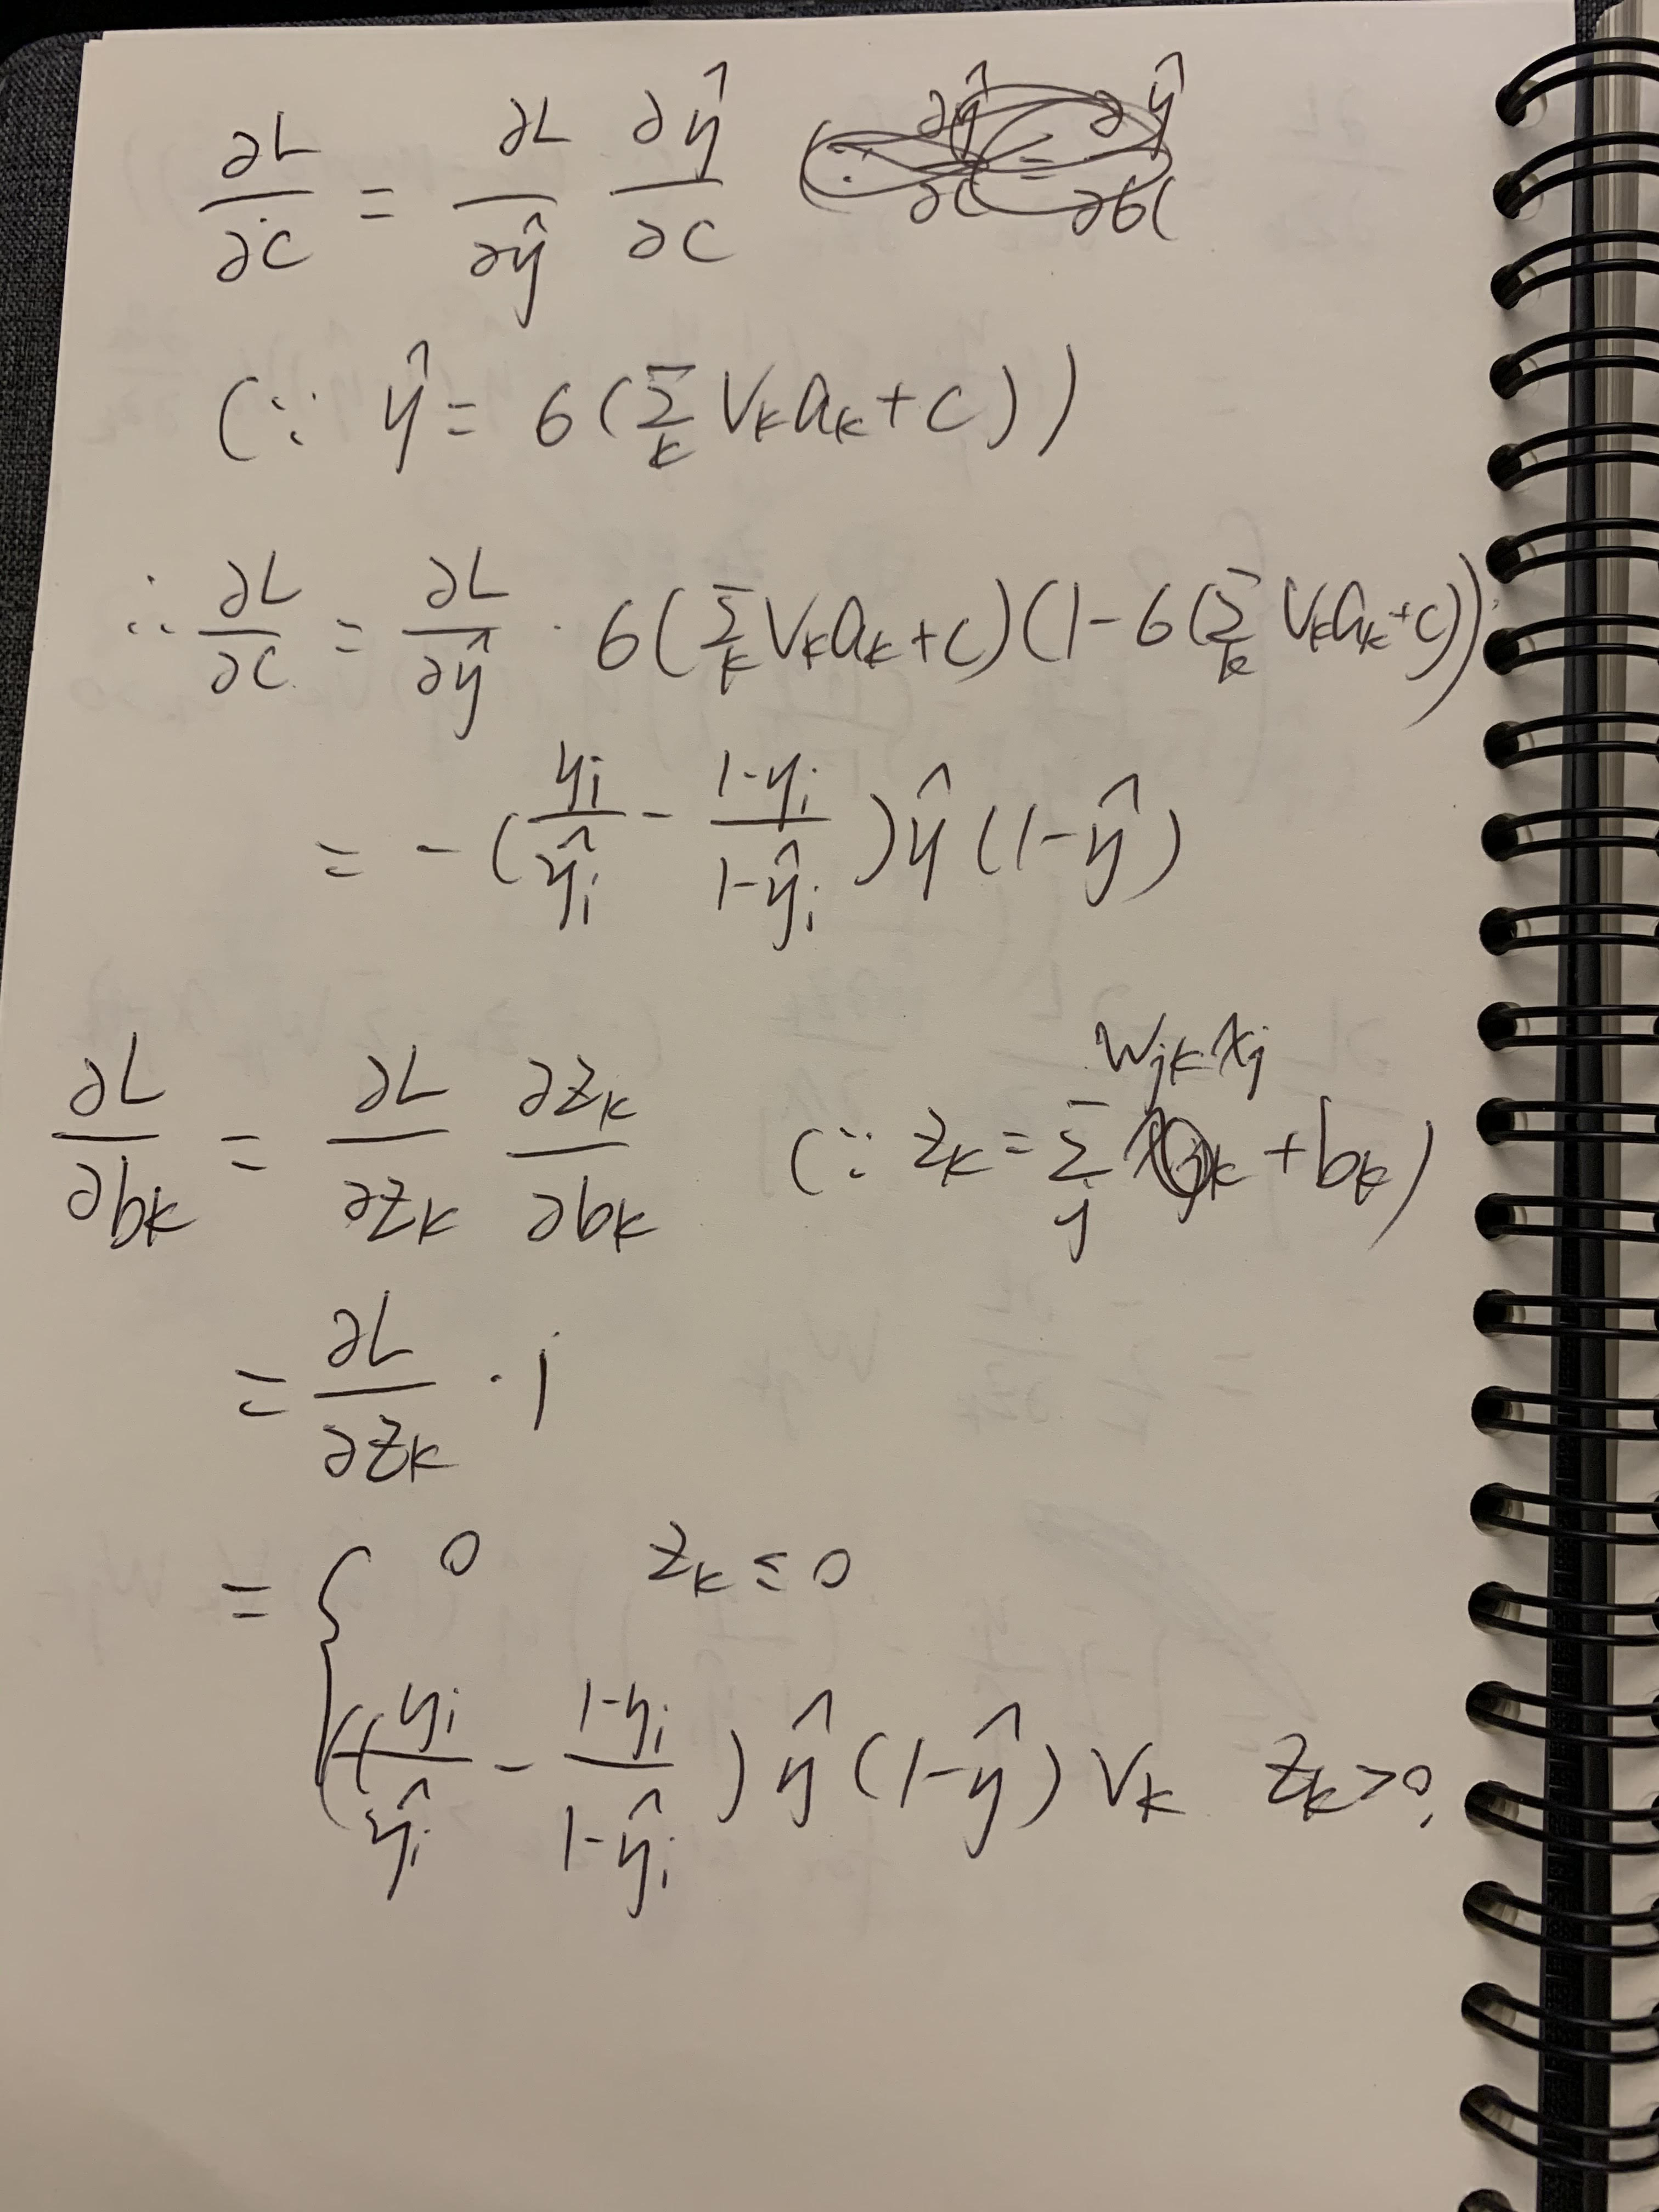 ∂L/∂c = ∂L/∂ŷ ∂ŷ/∂c
(∵ ŷ = 6(Σ_k V_k a_k + c))
∴ ∂L/∂c = ∂L/∂ŷ · 6(Σ_k V_k a_k + c)(1 - 6(Σ_k V_k a_k + c))
= -(y_i/ŷ_i - (1-y_i)/(1-ŷ_i)) ŷ(1-ŷ)
∂L/∂b_k = ∂L/∂z_k ∂z_k/∂b_k (∵ z_k = Σ_j W_jk x_j + b_k)
= ∂L/∂z_k · 1
= { 0 z_k ≤ 0
(-(y_i/ŷ_i - (1-y_i)/(1-ŷ_i)) ŷ(1-ŷ) V_k z_k > 0.